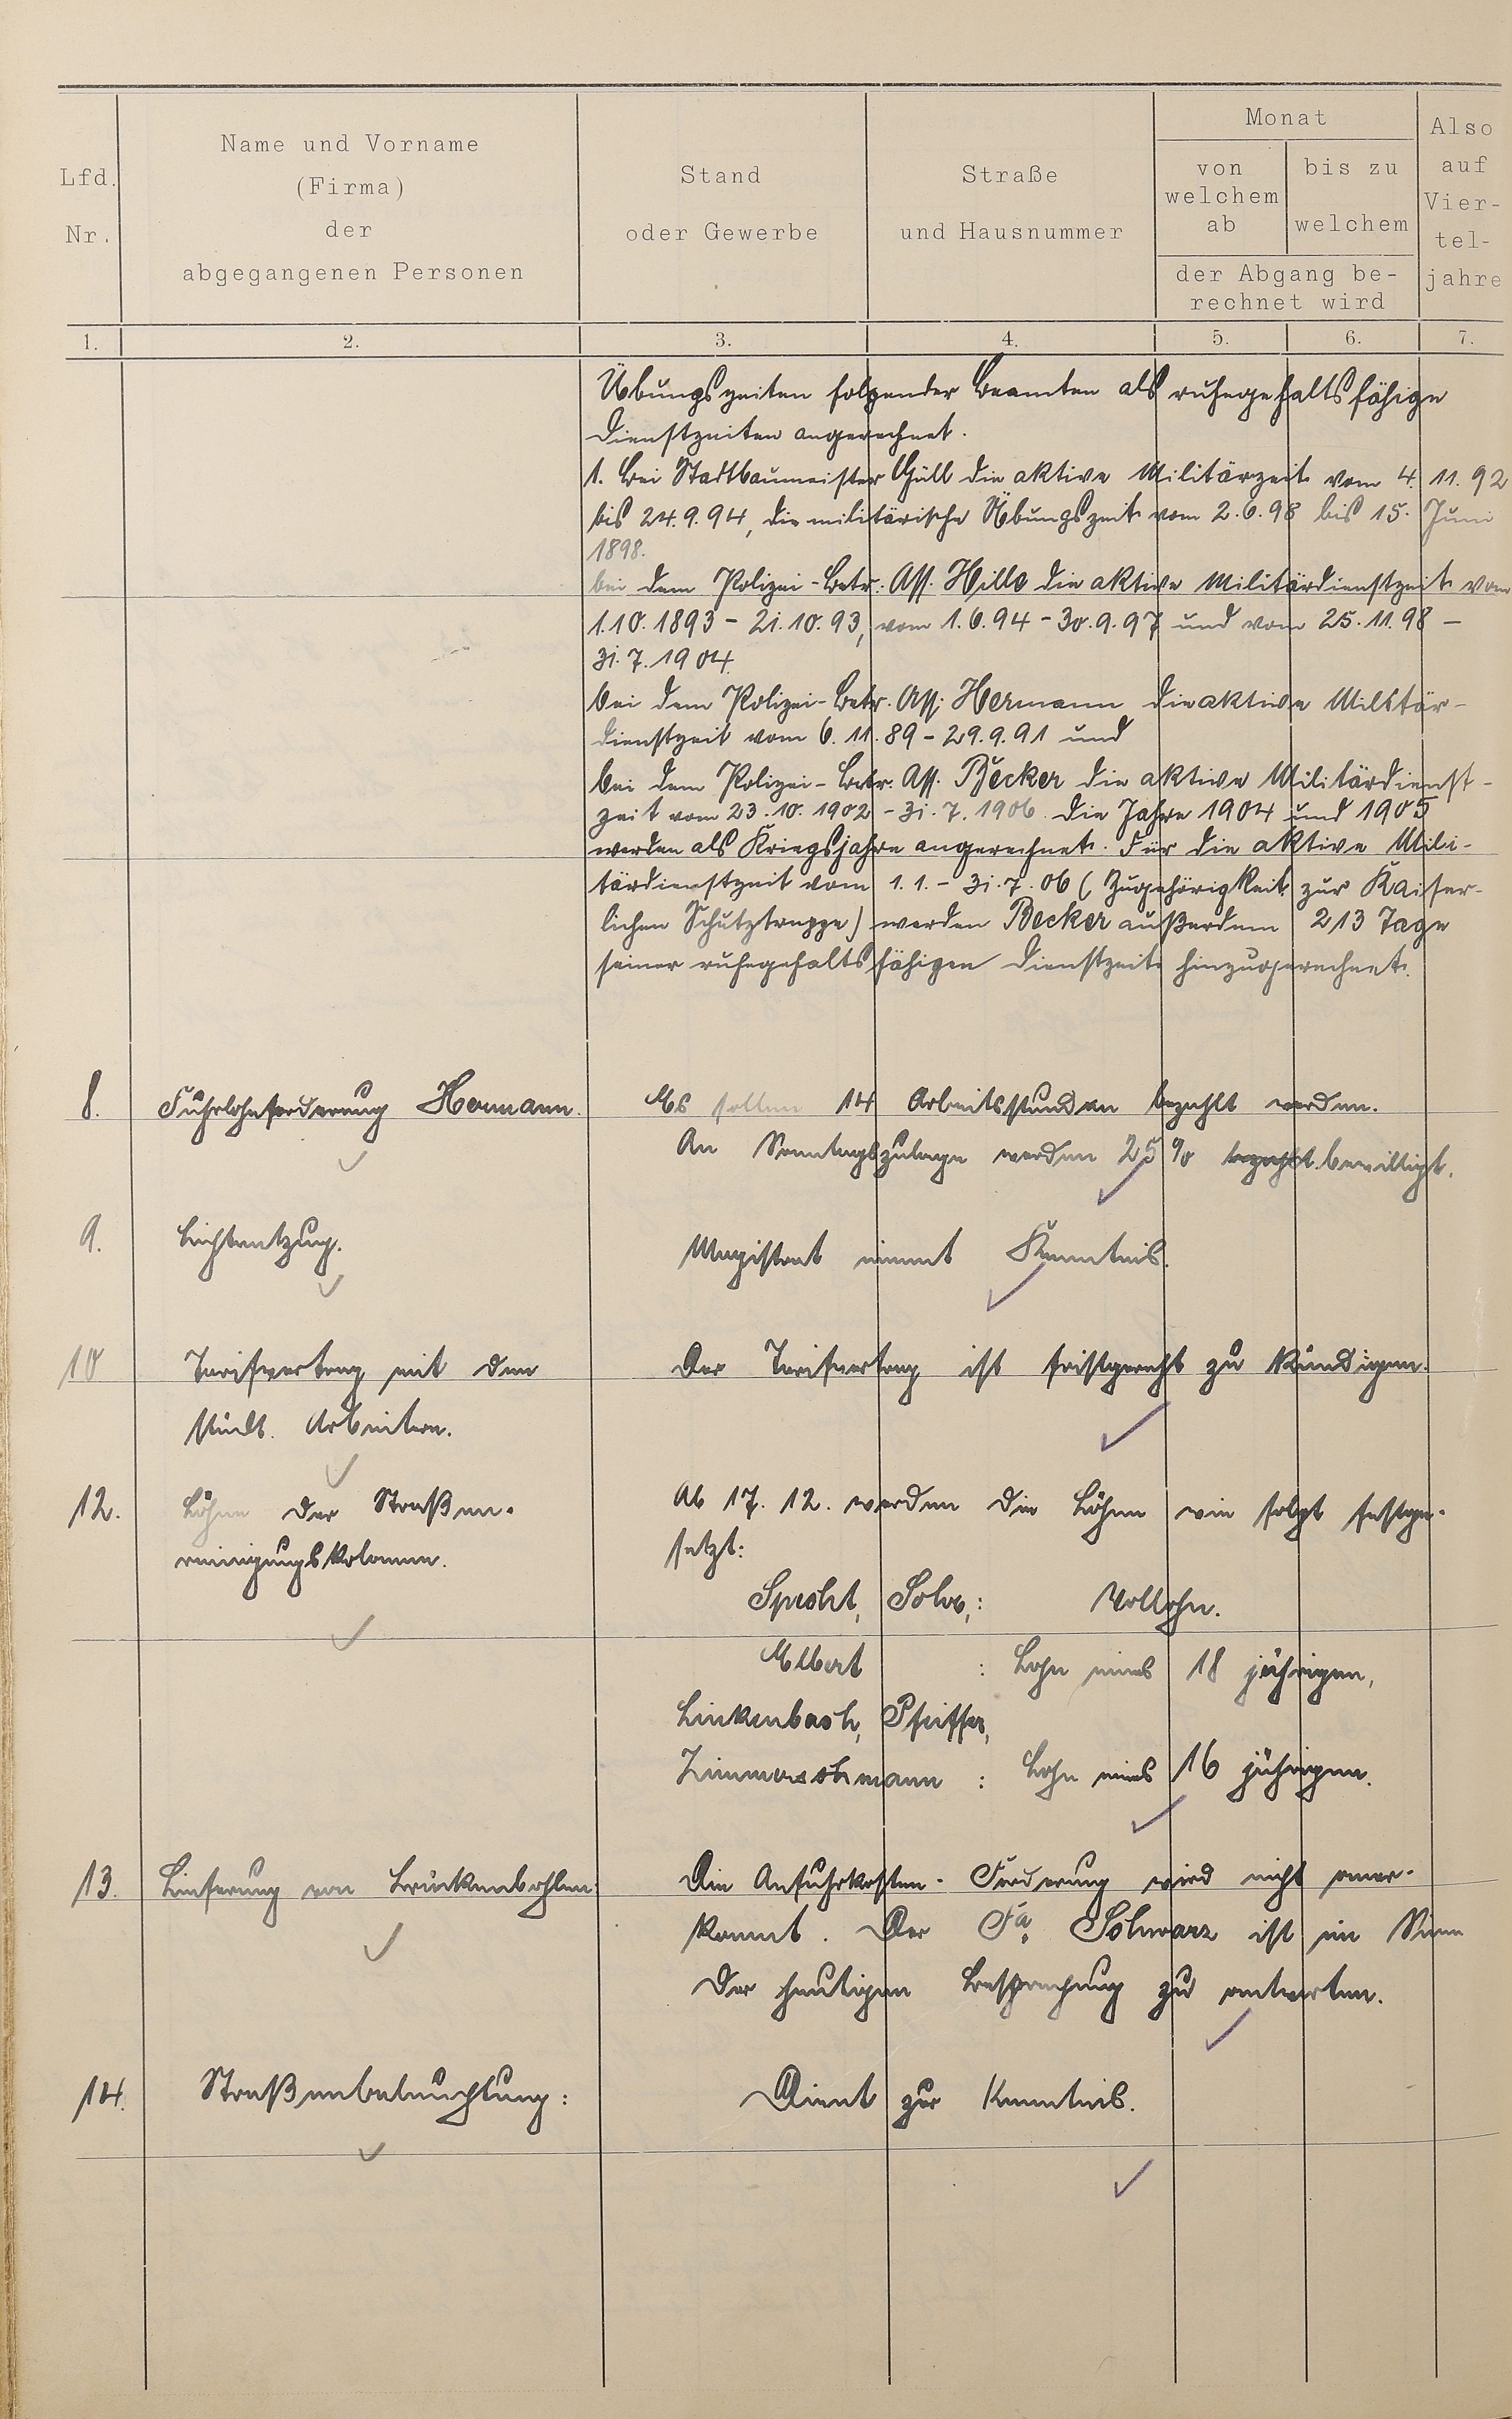 Lfd. Nr.
Name und Vorname
(Firma)
der
abgegangenen Personen
Stand
oder Gewerbe
Straße
und Hausnummer
Monat
von welchem ab
bis zu welchem
der Abgang be-
rechnet wird
Also auf Vier-tel-jahre
1. 2. 3. 4. 5. 6. 7.
Übungszeiten folgender Beamten als ruhegehaltsfähige
Dienstzeiten angerechnet.
1. Bei Stadtbaumeister Güll die aktive Militärzeit vom 4. 11. 92
bis 24.9.94, die militärische Übungszeit vom 2.6.98 bis 15. Juni
1898.
bei dem Polizei-Betr. Ass. Hille die aktive Militärdienstzeit vom
1.10.1893 - 21.10.93, vom 1.6.94 - 30.9.97 und vom 25.11.98 -
31.7.1904.
bei dem Polizei-Betr. Ass. Hermann die aktive Militär-
dienstzeit vom 6.11.89 - 29.9.91 und
bei dem Polizei-Betr. Ass. Becker die aktive Militärdienst-
zeit vom 23.10.1902 - 31.7.1906. Die Jahre 1904 und 1905
werden als Kriegsjahre angerechnet. Für die aktive Mili-
tärdienstzeit vom 1.1. - 31.7.06 (Zugehörigkeit zur Kaiser-
lichen Schutztruppe) werden Becker außerdem 213 Tage
seiner ruhegehaltsfähigen Dienstzeit hinzugerechnet.
8. Fuhrlohnforderung Hermann. Es sollen 14 Arbeitsstunden bezahlt werden.
An Sonntagszulage werden 25 % bezahlt bewilligt.
9. Lichtentzug. Magistrat nimmt Kenntnis.
10 Tarifvertrag mit den Der Tarifvertrag ist fristgerecht zu kündigen.
städt. Arbeitern.
12. Löhne der Straßen- Ab 17. 12. werden die Löhne wie folgt festge-
reinigungskolonne. setzt:
Specht, Solve,: Vollohn.
Elbert : Lohn eines 18 jährigen,
Linkenbach, Pfeiffer,
Zimmerschmann : Lohn eines 16 jährigen.
13. Lieferung von Brückenbohlen. Die Anfuhrkosten-Forderung wird nicht aner-
kannt. Der Fa. Schwarz ist im Sinn
der heutigen Besprechung zu antworten.
14. Straßenbeleuchtung: Dient zur Kenntnis.